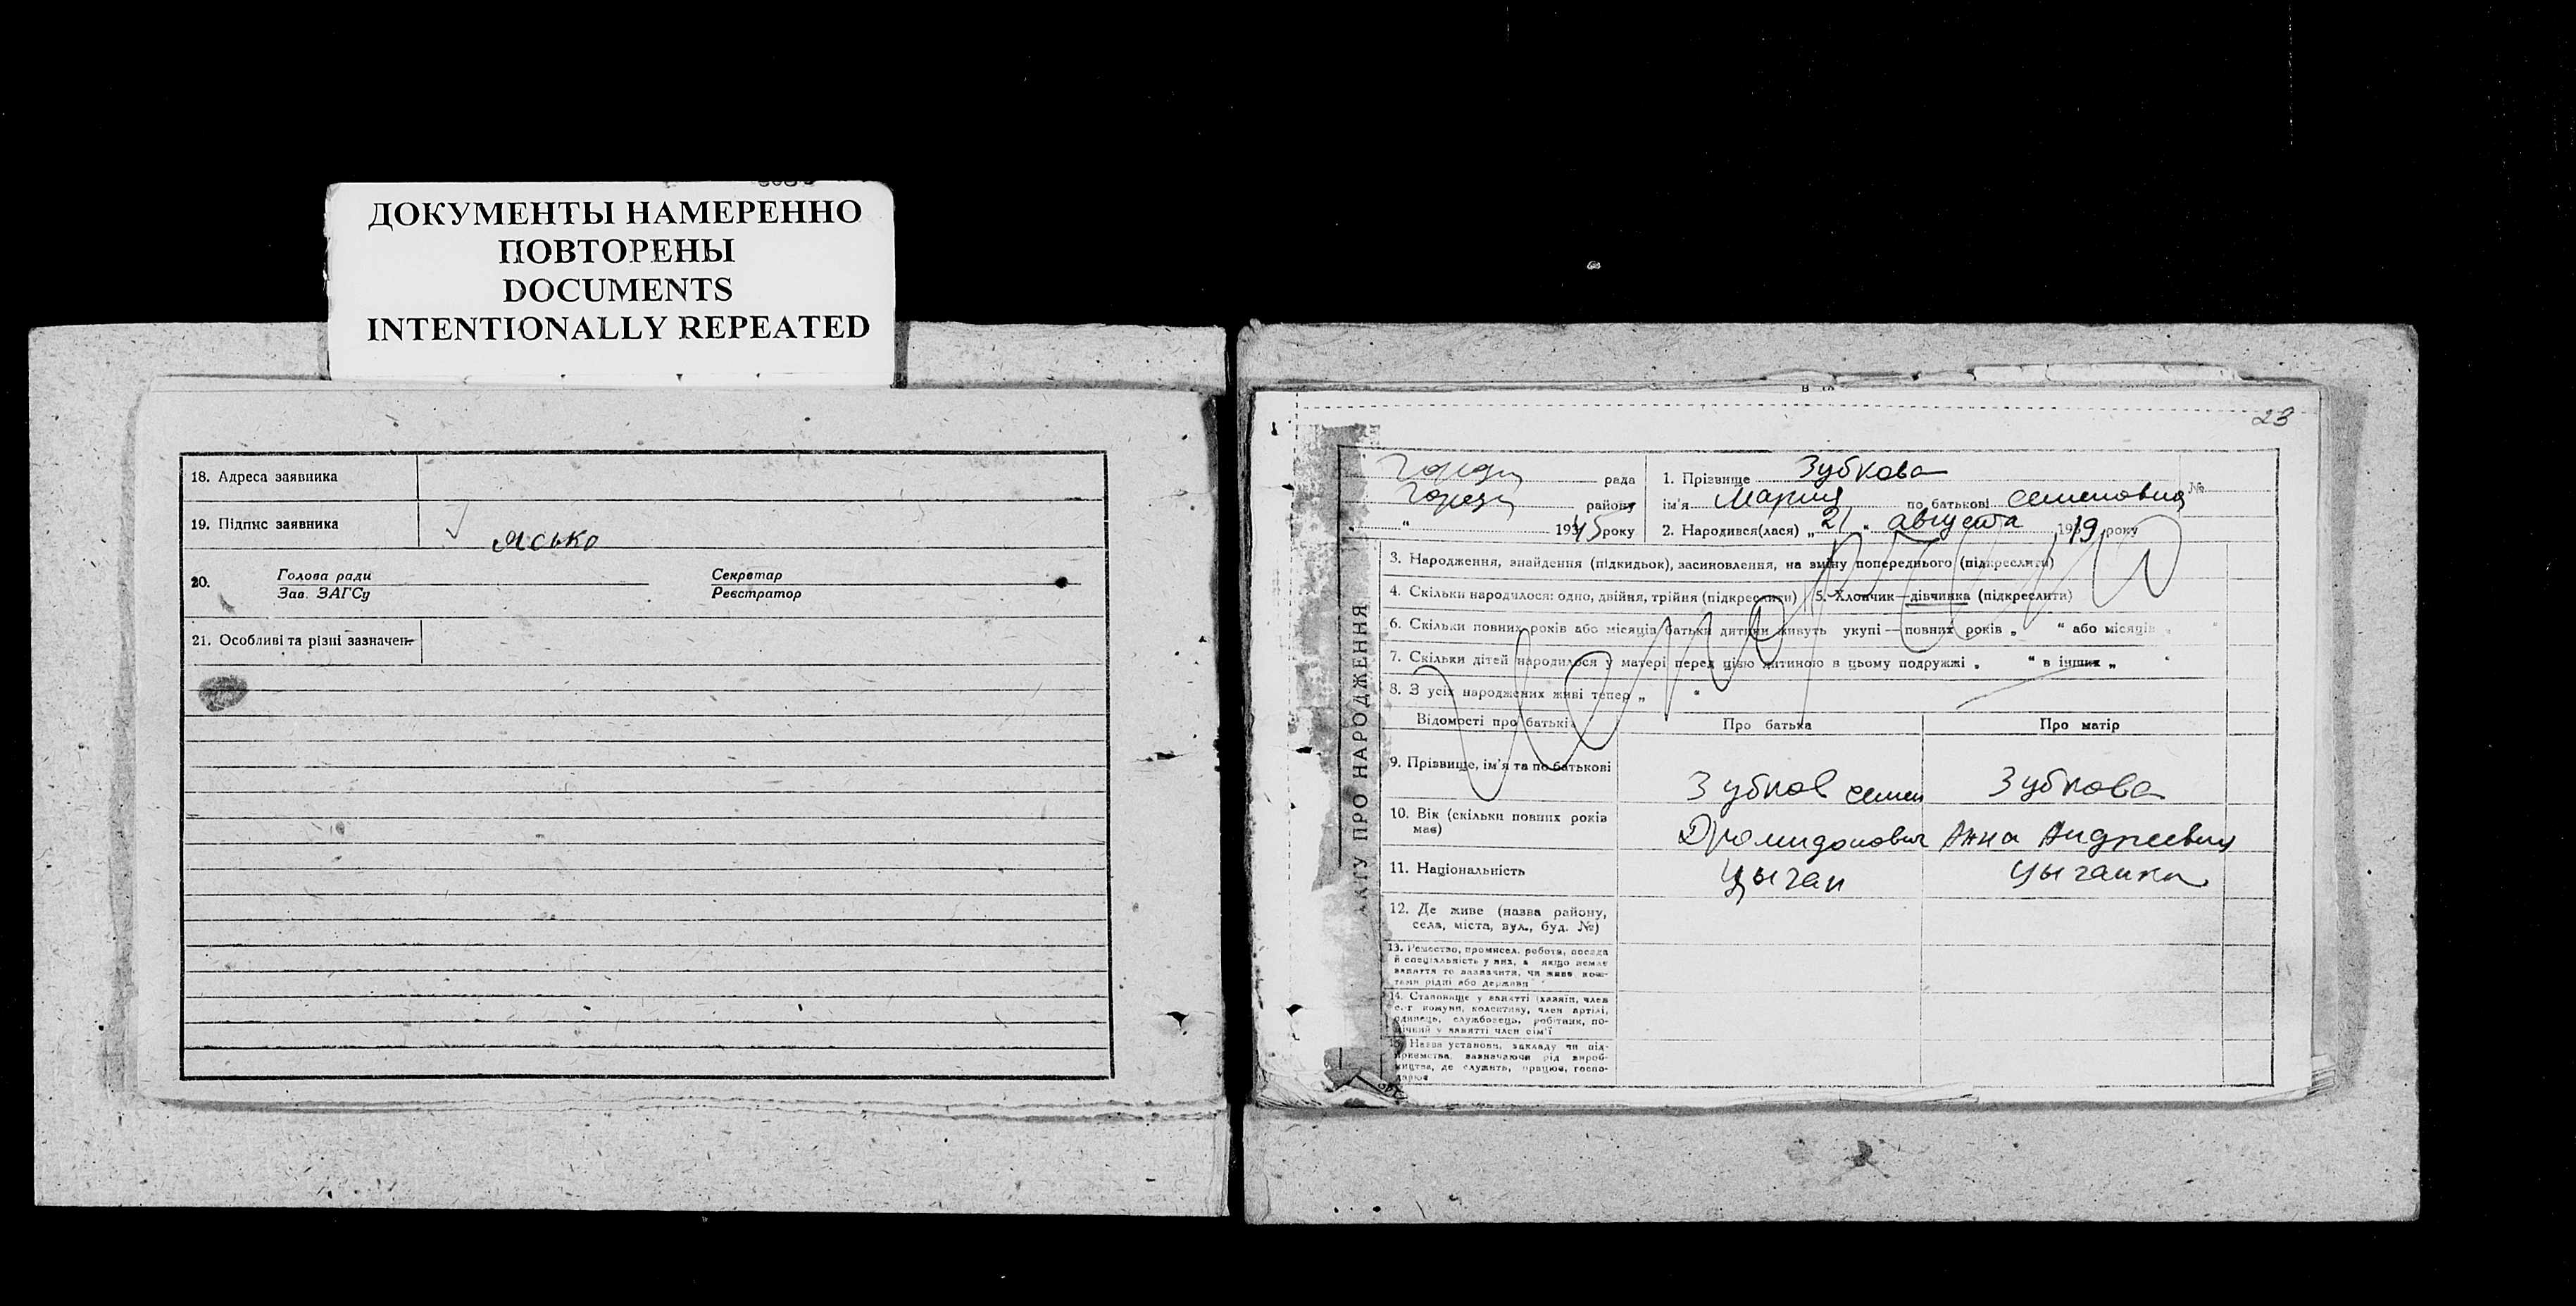 ДОКУМЕНТЫ НАМЕРЕННО
ПОВТОРЕНЫ
DOCUMENTS
INTENTIONALLY REPEATED
18. Адреса заявника
19. Підпис заявника
Ясько
20. Голова ради Секретар
Зав. ЗАГСу Реєстратор
21. Особливі та різні зазначен.
23
рада
району
1945 року
АКТУ ПРО НАРОДЖЕННЯ
1. Прізвище Зубкова
ім'я Мария по батькові Семеновна №
2. Народився(лася) „21" августа 1919 року
3. Народження, знайдення (підкидьок), засиновлення, на зміну попереднього (підкреслити)
4. Скільки народилося: одно, двійня, трійня (підкреслити) 5. Хлопчик—дівчинка (підкреслити)
6. Скільки повних років або місяців батьки дитини живуть укупі—повних років „ " або місяців „ "
7. Скільки дітей народилося у матері перед цією дитиною в цьому подружжі „ " в інших „ "
8. З усіх народжених живі тепер „ "
Відомості про батьків Про батька Про матір
9. Прізвище, ім'я та по батькові Зубков Семен Зубкова
10. Вік (скільки повних років має) Анна Андреевна
11. Національність Цыган Цыганка
12. Де живе (назва району, села, міста, вул., буд. №)
13. Ремество, промисел, робота, посада
й спеціальність у них, а якщо немає
заняття то зазначити, чи живе кош-
тами рідні або держави
14. Становище у занятті (хазяїн, член
с.-г комуни, колективу, член артілі,
одинець, службовець, робітник, по-
мічний у занятті член сім'ї
15. Назва установи, закладу чи під-
приємства, зазначаючи рід вироб-
ництва, де служить, працює, госпо-
дарює